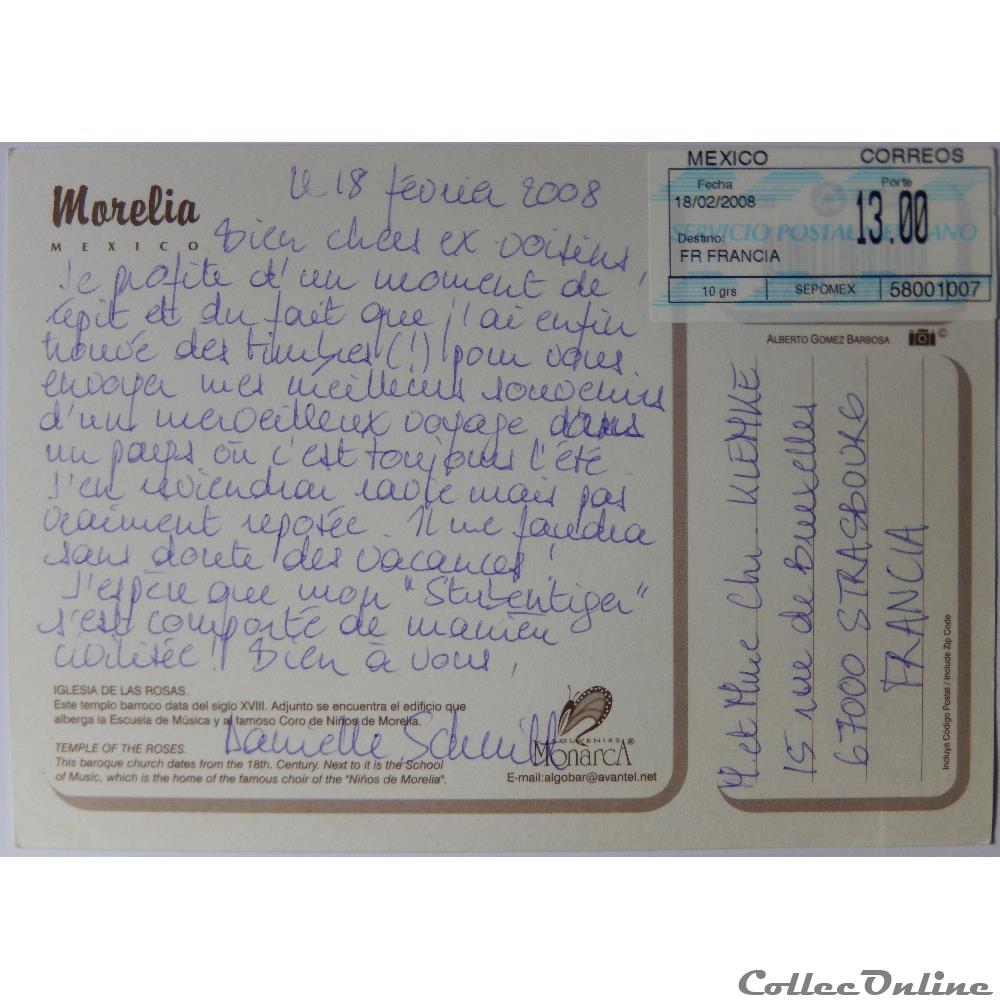 Morelia
MEXICO
Le 18 février 2008
Bien chers ex-voisins,
Je profite d'un moment de
répit et du fait que j'ai enfin
trouvé des timbres (!) pour vous
envoyer mes meilleurs souvenirs
d'un merveilleux voyage dans
un pays où c'est toujours l'été.
J'en reviendrai ravie mais pas
vraiment reposée. Il me faudra
sans doute des vacances !
J'espère que mon "Stubentiger"
s'est comporté de manière
civilisée ! Bien à vous,
Danielle Schmitt
IGLESIA DE LAS ROSAS.
Este templo barroco data del siglo XVIII. Adjunto se encuentra el edificio que
alberga la Escuela de Música y al famoso Coro de Niños de Morelia.
TEMPLE OF THE ROSES.
This baroque church dates from the 18th. Century. Next to it is the School
of Music, which is the home of the famous choir of the "Niños de Morelia".
SOUVENIRS
MONARCA®
E-mail:algobar@avantel.net
MEXICO CORREOS
Fecha Porte
18/02/2008 13.00
SERVICIO POSTAL MEXICANO
Destino:
FR FRANCIA
10 grs SEPOMEX 58001007
ALBERTO GOMEZ BARBOSA ©
M. et Mme Chr.
15 rue de Bruxelles
67000 STRASBOURG
FRANCIA
Incluya Código Postal / Include Zip Code
CollecOnline